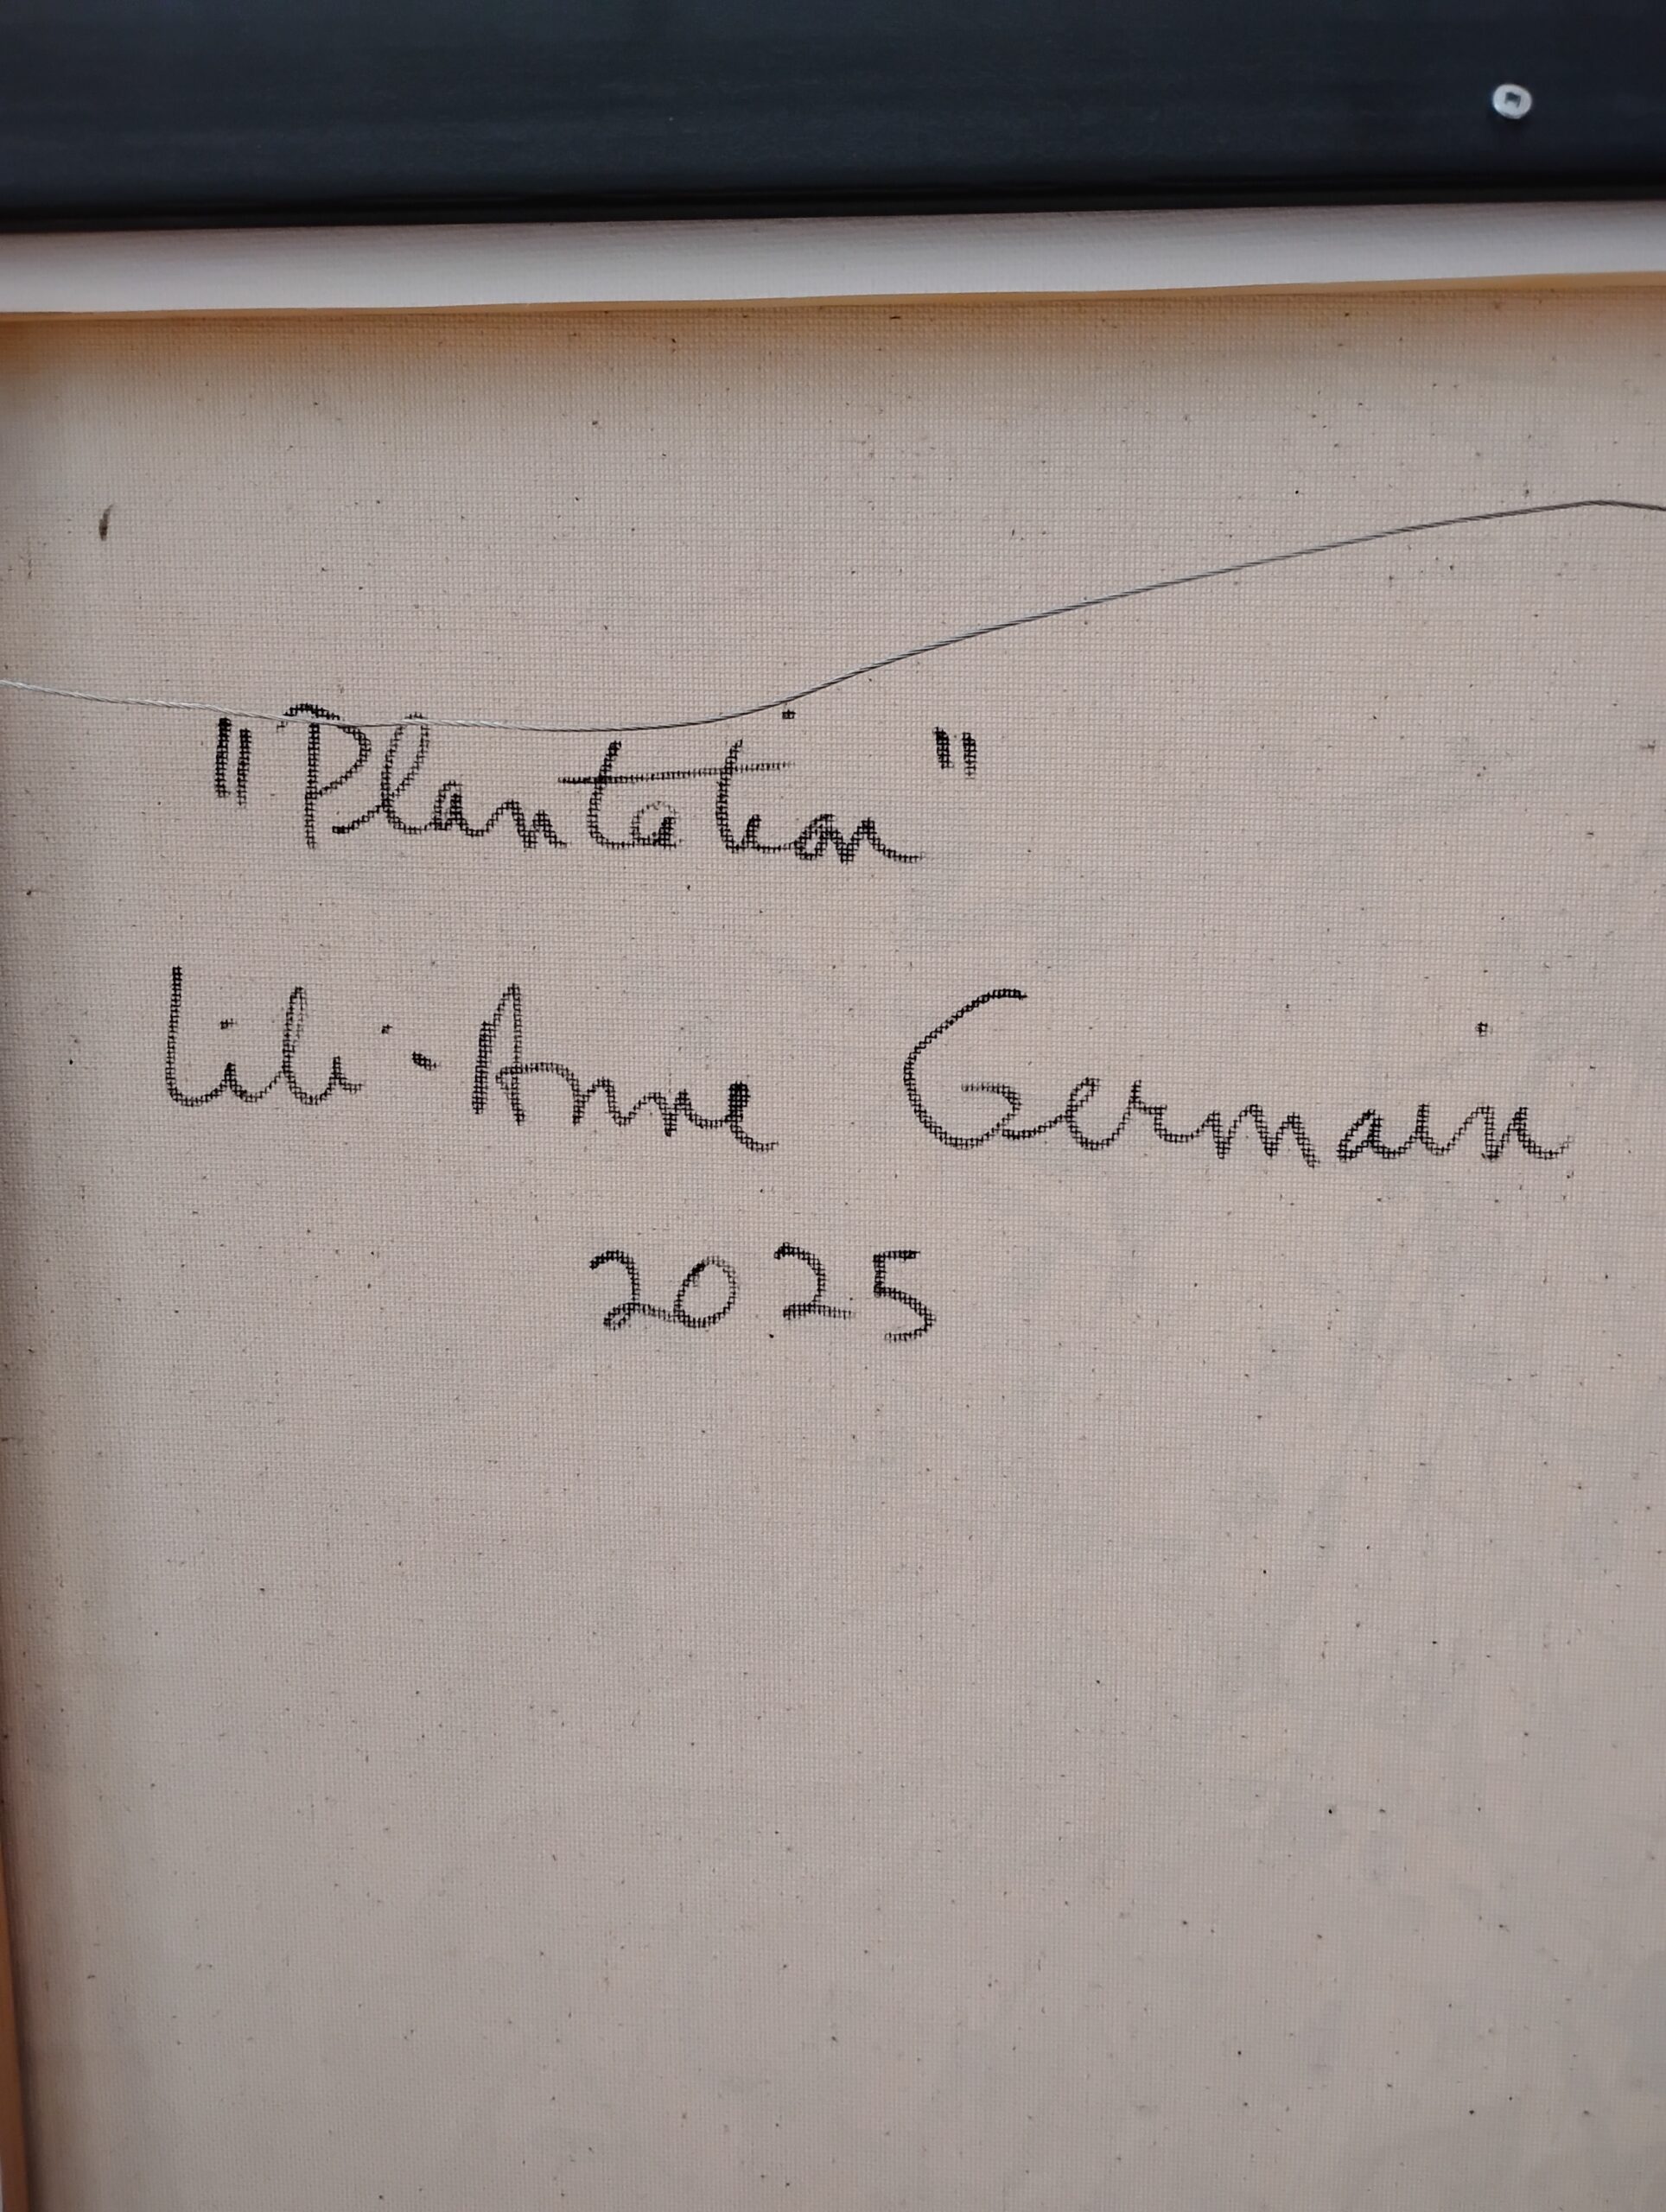 "Plantation"
Lili-Anne Germain
2025